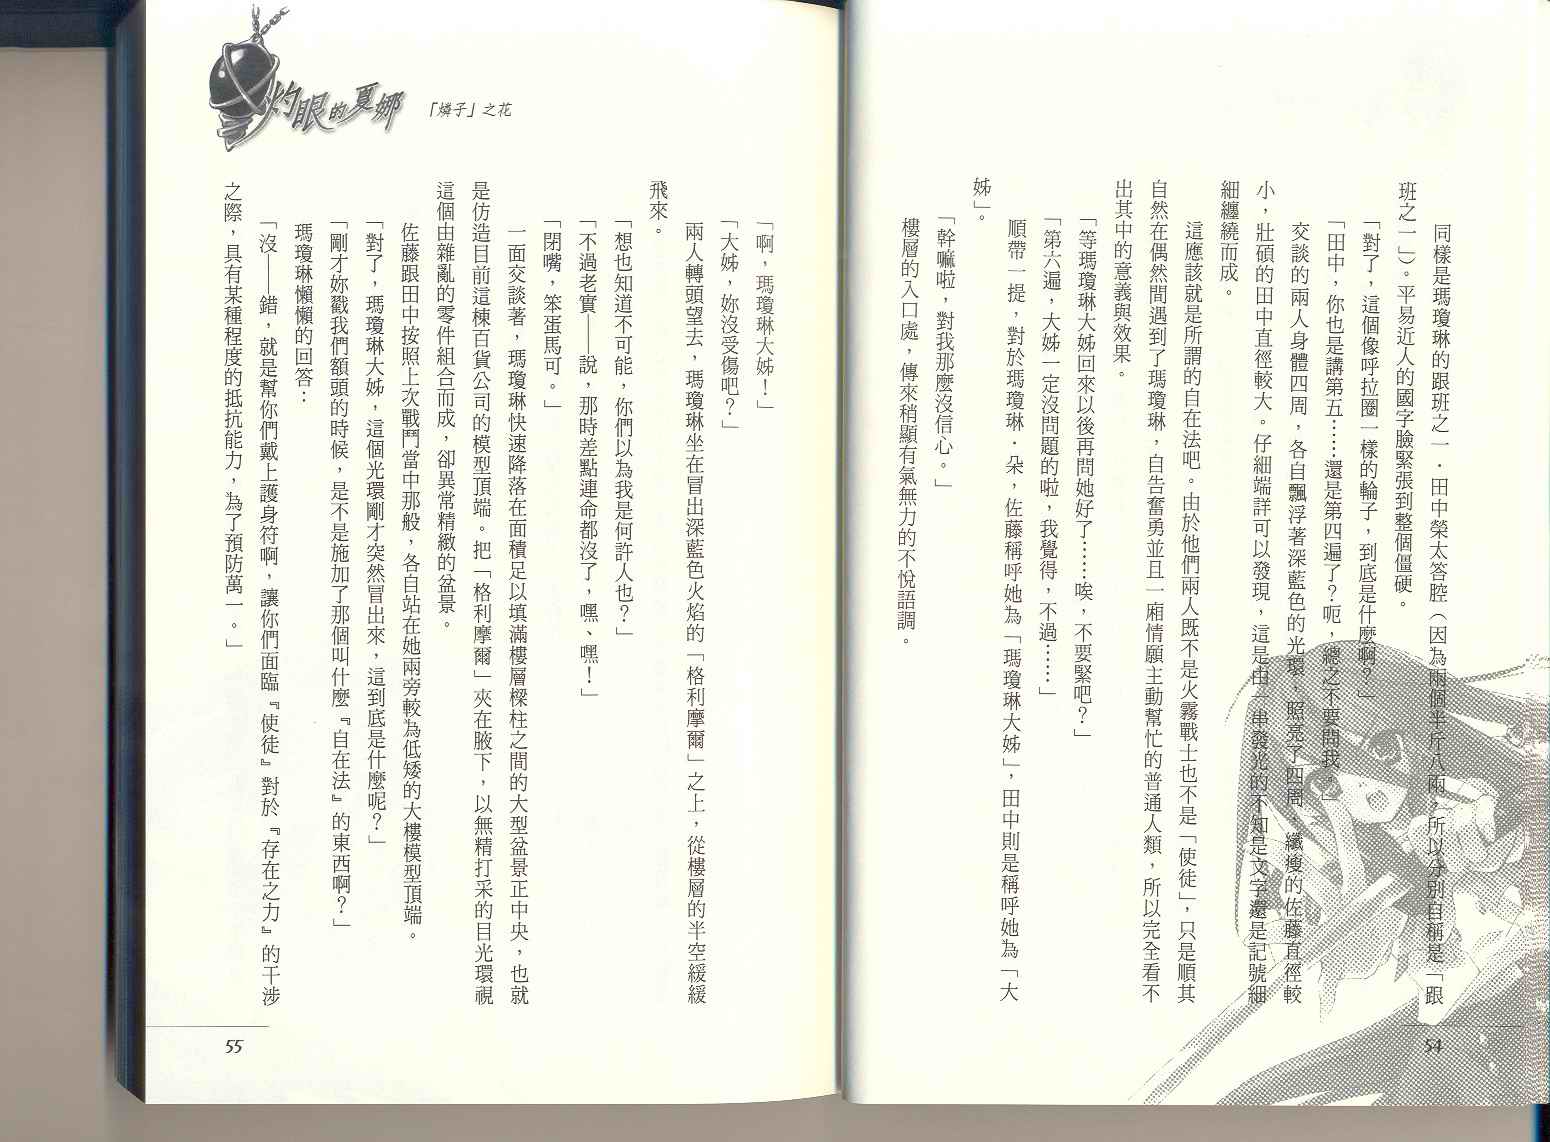 同樣是瑪瓊琳的跟班之一．田中榮太答腔（因為兩個半斤八兩，所以分別自稱是「跟
班之一」）。平易近人的國字臉緊張到整個僵硬。
「對了，這個像呼拉圈一樣的輪子，到底是什麼啊？」
「田中，你也是講第五……還是第四遍了？呃，總之不要問我。」
交談的兩人身體四周，各自飄浮著深藍色的光環，照亮了四周，纖瘦的佐藤直徑較
小，壯碩的田中直徑較大。仔細端詳可以發現，這是由一串發光的不知是文字還是記號細
細纏繞而成。
這應該就是所謂的自在法吧。由於他們兩人既不是火霧戰士也不是「使徒」，只是順其
自然在偶然間遇到了瑪瓊琳，自告奮勇並且一廂情願主動幫忙的普通人類，所以完全看不
出其中的意義與效果。
「等瑪瓊琳大姊回來以後再問她好了……唉，不要緊吧？」
「第六遍，大姊一定沒問題的啦，我覺得，不過……」
順帶一提，對於瑪瓊琳．朵，佐藤稱呼她為「瑪瓊琳大姊」，田中則是稱呼她為「大
姊」。
「幹嘛啦，對我那麼沒信心。」
樓層的入口處，傳來稍顯有氣無力的不悅語調。
54
灼眼的夏娜
「燐子」之花
「啊，瑪瓊琳大姊！」
「大姊，妳沒受傷吧？」
兩人轉頭望去，瑪瓊琳坐在冒出深藍色火焰的「格利摩爾」之上，從樓層的半空緩緩
飛來。
「想也知道不可能，你們以為我是何許人也？」
「不過老實——說，那時差點連命都沒了，嘿、嘿！」
「閉嘴，笨蛋馬可。」
一面交談著，瑪瓊琳快速降落在面積足以填滿樓層樑柱之間的大型盆景正中央，也就
是仿造目前這棟百貨公司的模型頂端。把「格利摩爾」夾在腋下，以無精打采的目光環視
這個由雜亂的零件組合而成，卻異常精緻的盆景。
佐藤跟田中按照上次戰鬥當中那般，各自站在她兩旁較為低矮的大樓模型頂端。
「對了，瑪瓊琳大姊，這個光環剛才突然冒出來，這到底是什麼呢？」
「剛才妳戳我們額頭的時候，是不是施加了那個叫什麼『自在法』的東西啊？」
瑪瓊琳懶懶的回答：
「沒——錯，就是幫你們戴上護身符啊，讓你們面臨『使徒』對於『存在之力』的干涉
之際，具有某種程度的抵抗能力，為了預防萬一。」
55